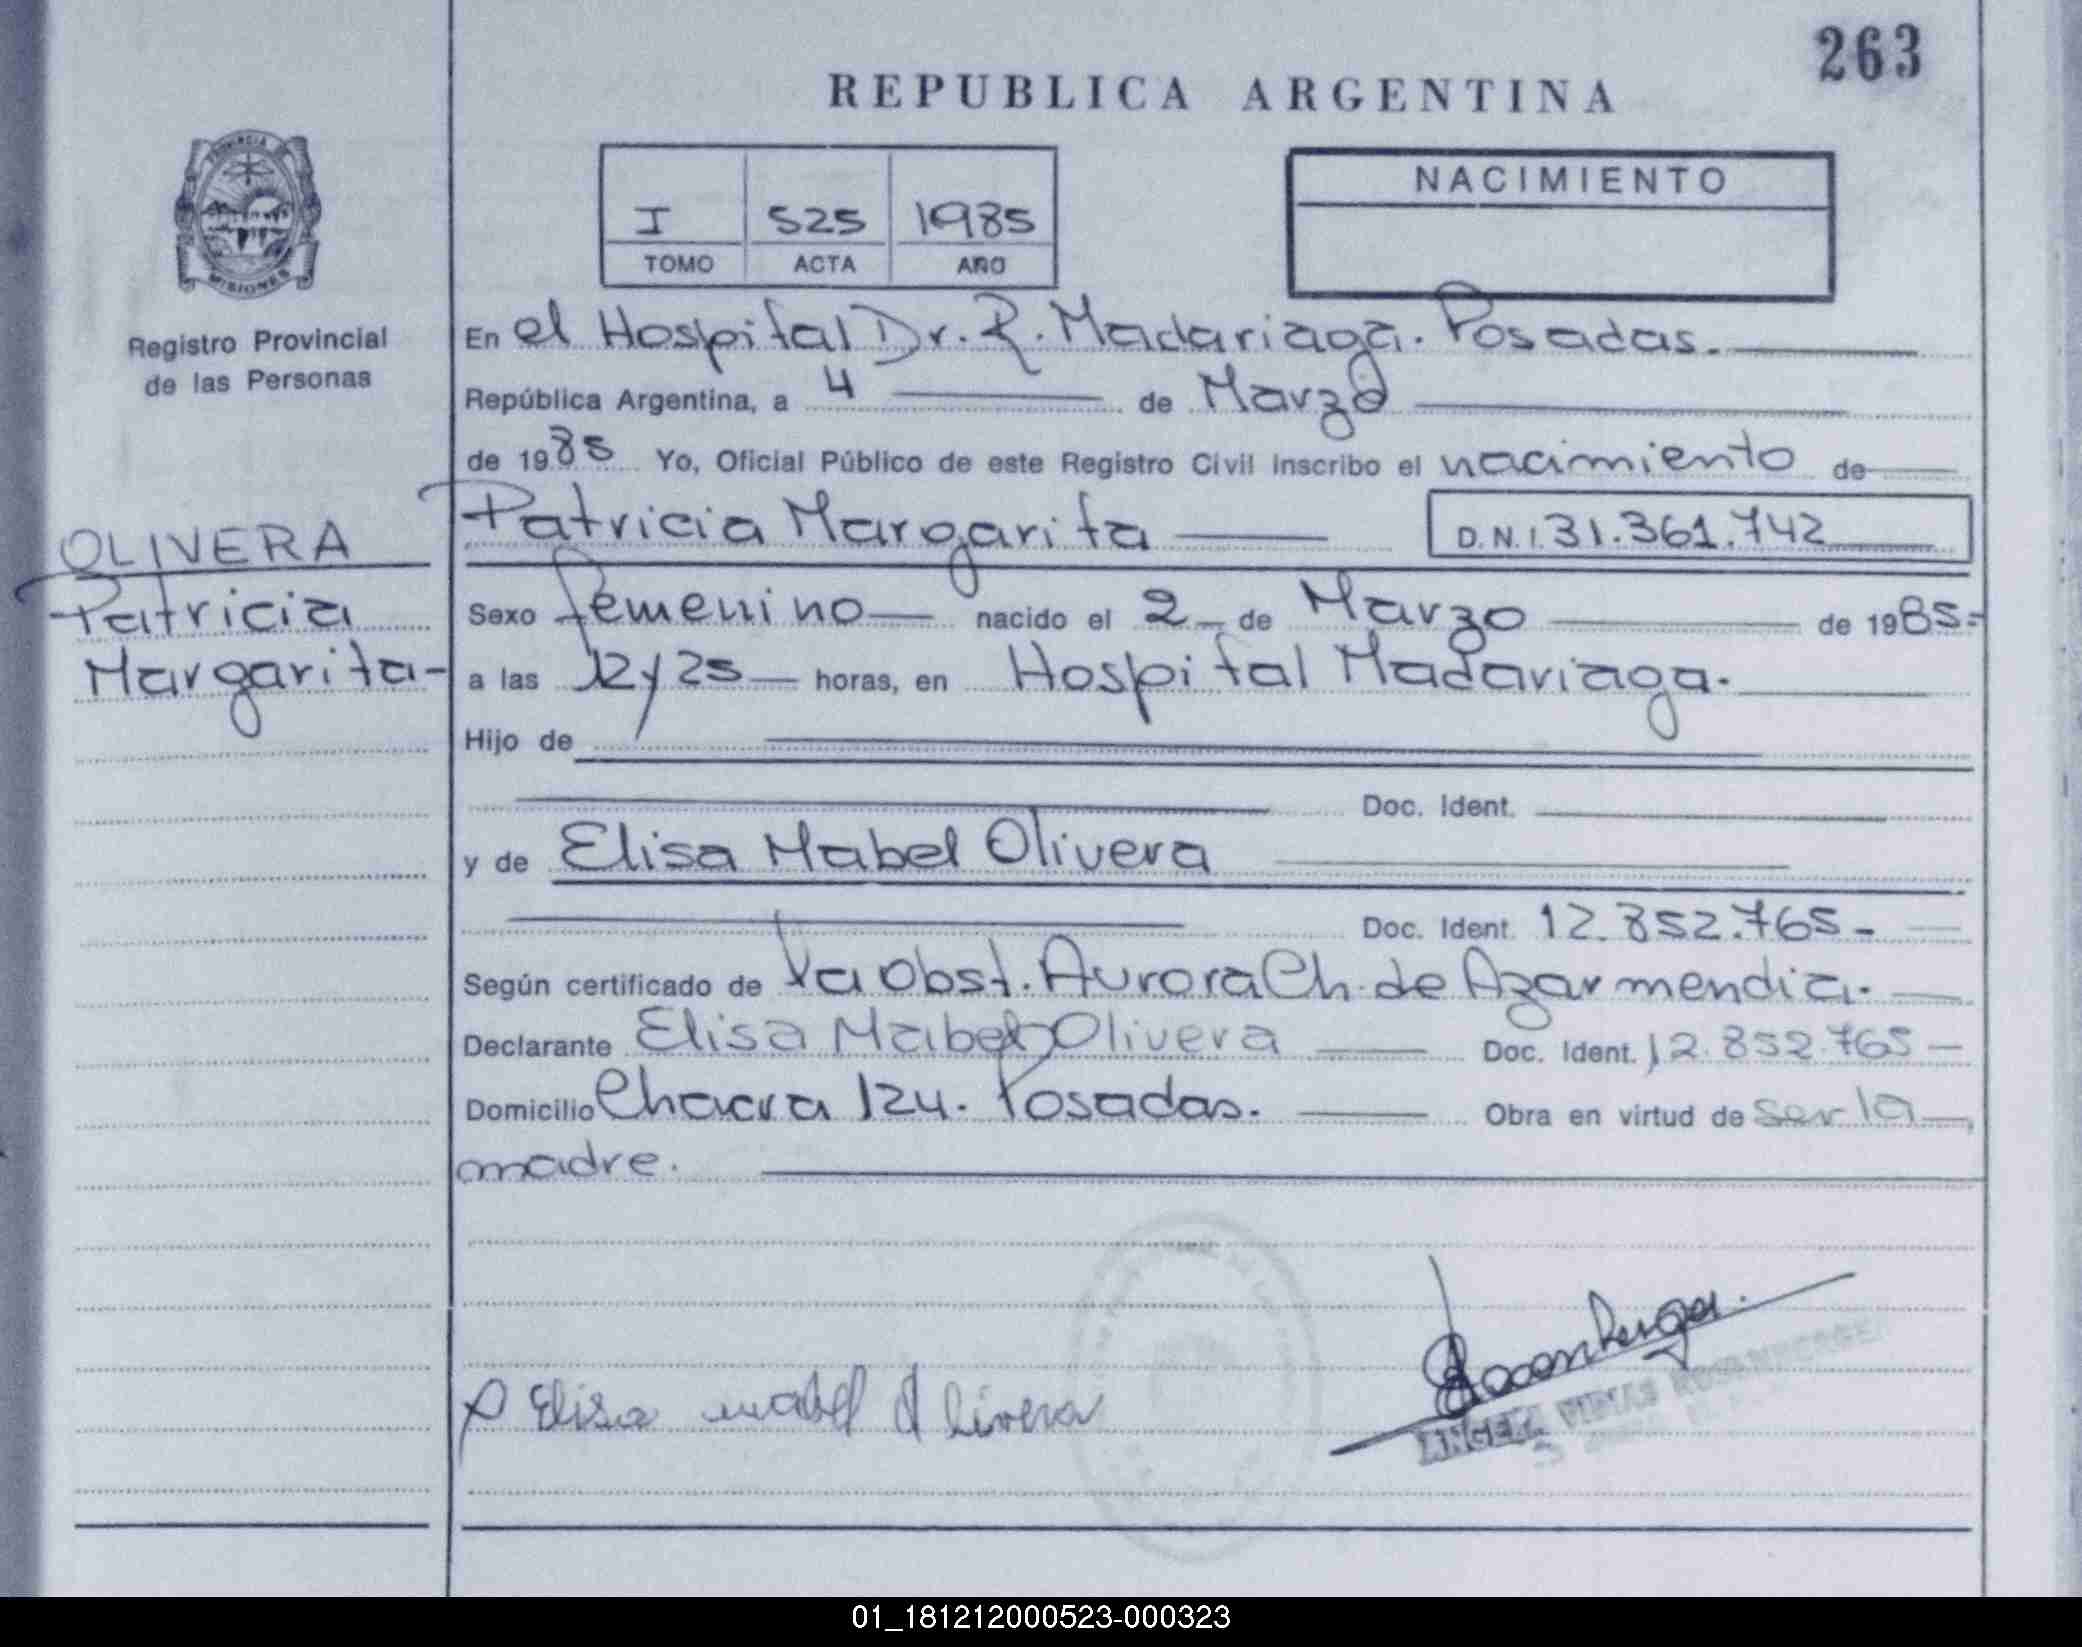 263
REPUBLICA ARGENTINA
PROVINCIA DE
MISIONES
I 525 1985
TOMO ACTA AÑO
NACIMIENTO
Registro Provincial
de las Personas
En el Hospital Dr. R. Madariaga. Posadas.
República Argentina, a 4 de Marzo
de 1985 Yo, Oficial Público de este Registro Civil inscribo el nacimiento de
Patricia Margarita D.N.I. 31.361.742
OLIVERA
Patricia
Margarita-
Sexo femenino nacido el 2 de Marzo de 1985.-
a las 12 y 25 horas, en Hospital Madariaga.
Hijo de
Doc. Ident.
y de Elisa Mabel Olivera
Doc. Ident. 12.852.765-
Según certificado de la Obst. Aurora Ch. de Azarmendia.
Declarante Elisa Mabel Olivera Doc. Ident. 12.852.765
Domicilio Chacra 124. Posadas. Obra en virtud de ser la
madre.
Elisa mabel Olivera
01_181212000523-000323